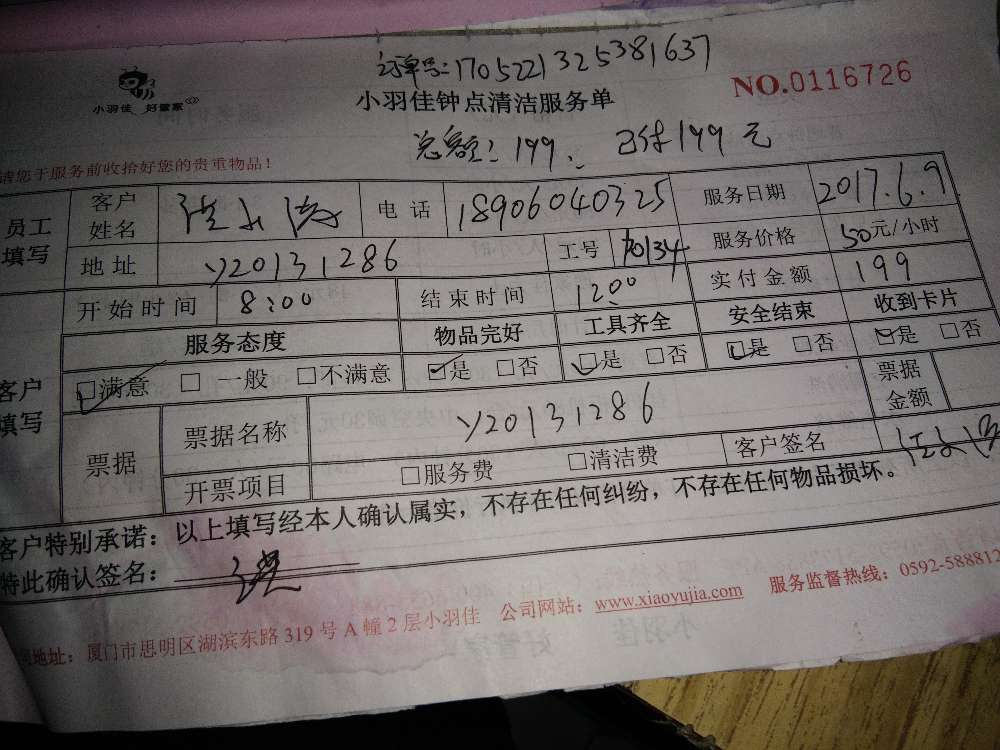 订单号:1705221325381637
小羽佳 好管家
小羽佳钟点清洁服务单
NO.0116726
总额:199. 已付199元
请您于服务前收拾好您的贵重物品!
员工填写 客户姓名 电话 18906040325 服务日期 2017.6.9
地址 Y20131286 工号 70134 服务价格 50元/小时
开始时间 8:00 结束时间 12:00 实付金额 199
客户填写 服务态度 物品完好 工具齐全 安全结束 收到卡片
☑满意 □一般 □不满意 ☑是 □否 ☑是 □否 ☑是 □否 ☑是 □否
票据 票据名称 Y20131286 票据金额
开票项目 □服务费 □清洁费 客户签名
客户特别承诺:以上填写经本人确认属实,不存在任何纠纷,不存在任何物品损坏。
特此确认签名:
地址:厦门市思明区湖滨东路319号A幢2层小羽佳 公司网站:www.xiaoyujia.com 服务监督热线:0592-588812